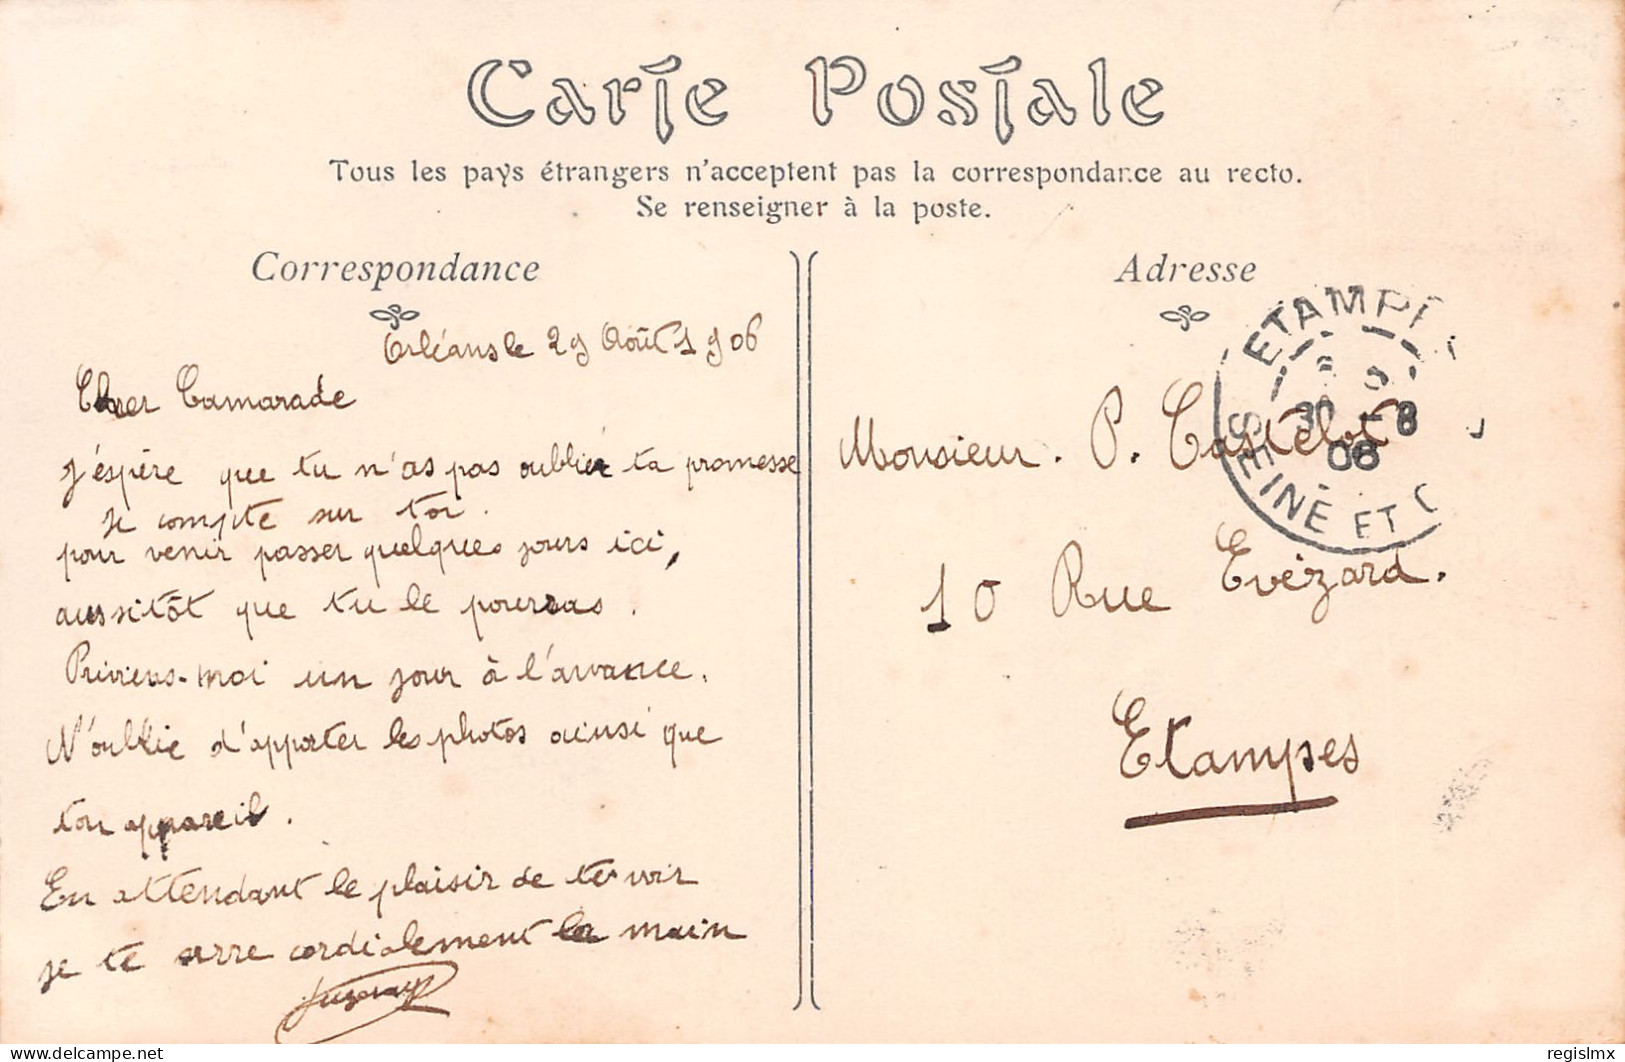 Carte Postale
Tous les pays étrangers n'acceptent pas la correspondance au recto.
Se renseigner à la poste.
Correspondance
Orléans le 29 Août 1906
Cher Camarade
J'éspère que tu n'as pas oublier ta promesse
Je compte sur toi.
pour venir passer quelques jours ici,
aussitôt que tu le pourras.
Préviens-moi un jour à l'avance.
N'oublie d'apporter les photos ainsi que
ton appareil.
En attendant le plaisir de te voir
je te serre cordialement la main
Adresse
Monsieur. P. Castelot
10 Rue Evézard.
Etampes
ETAMP
30 -8
06
SEINE ET
delcampe.net
regislmx